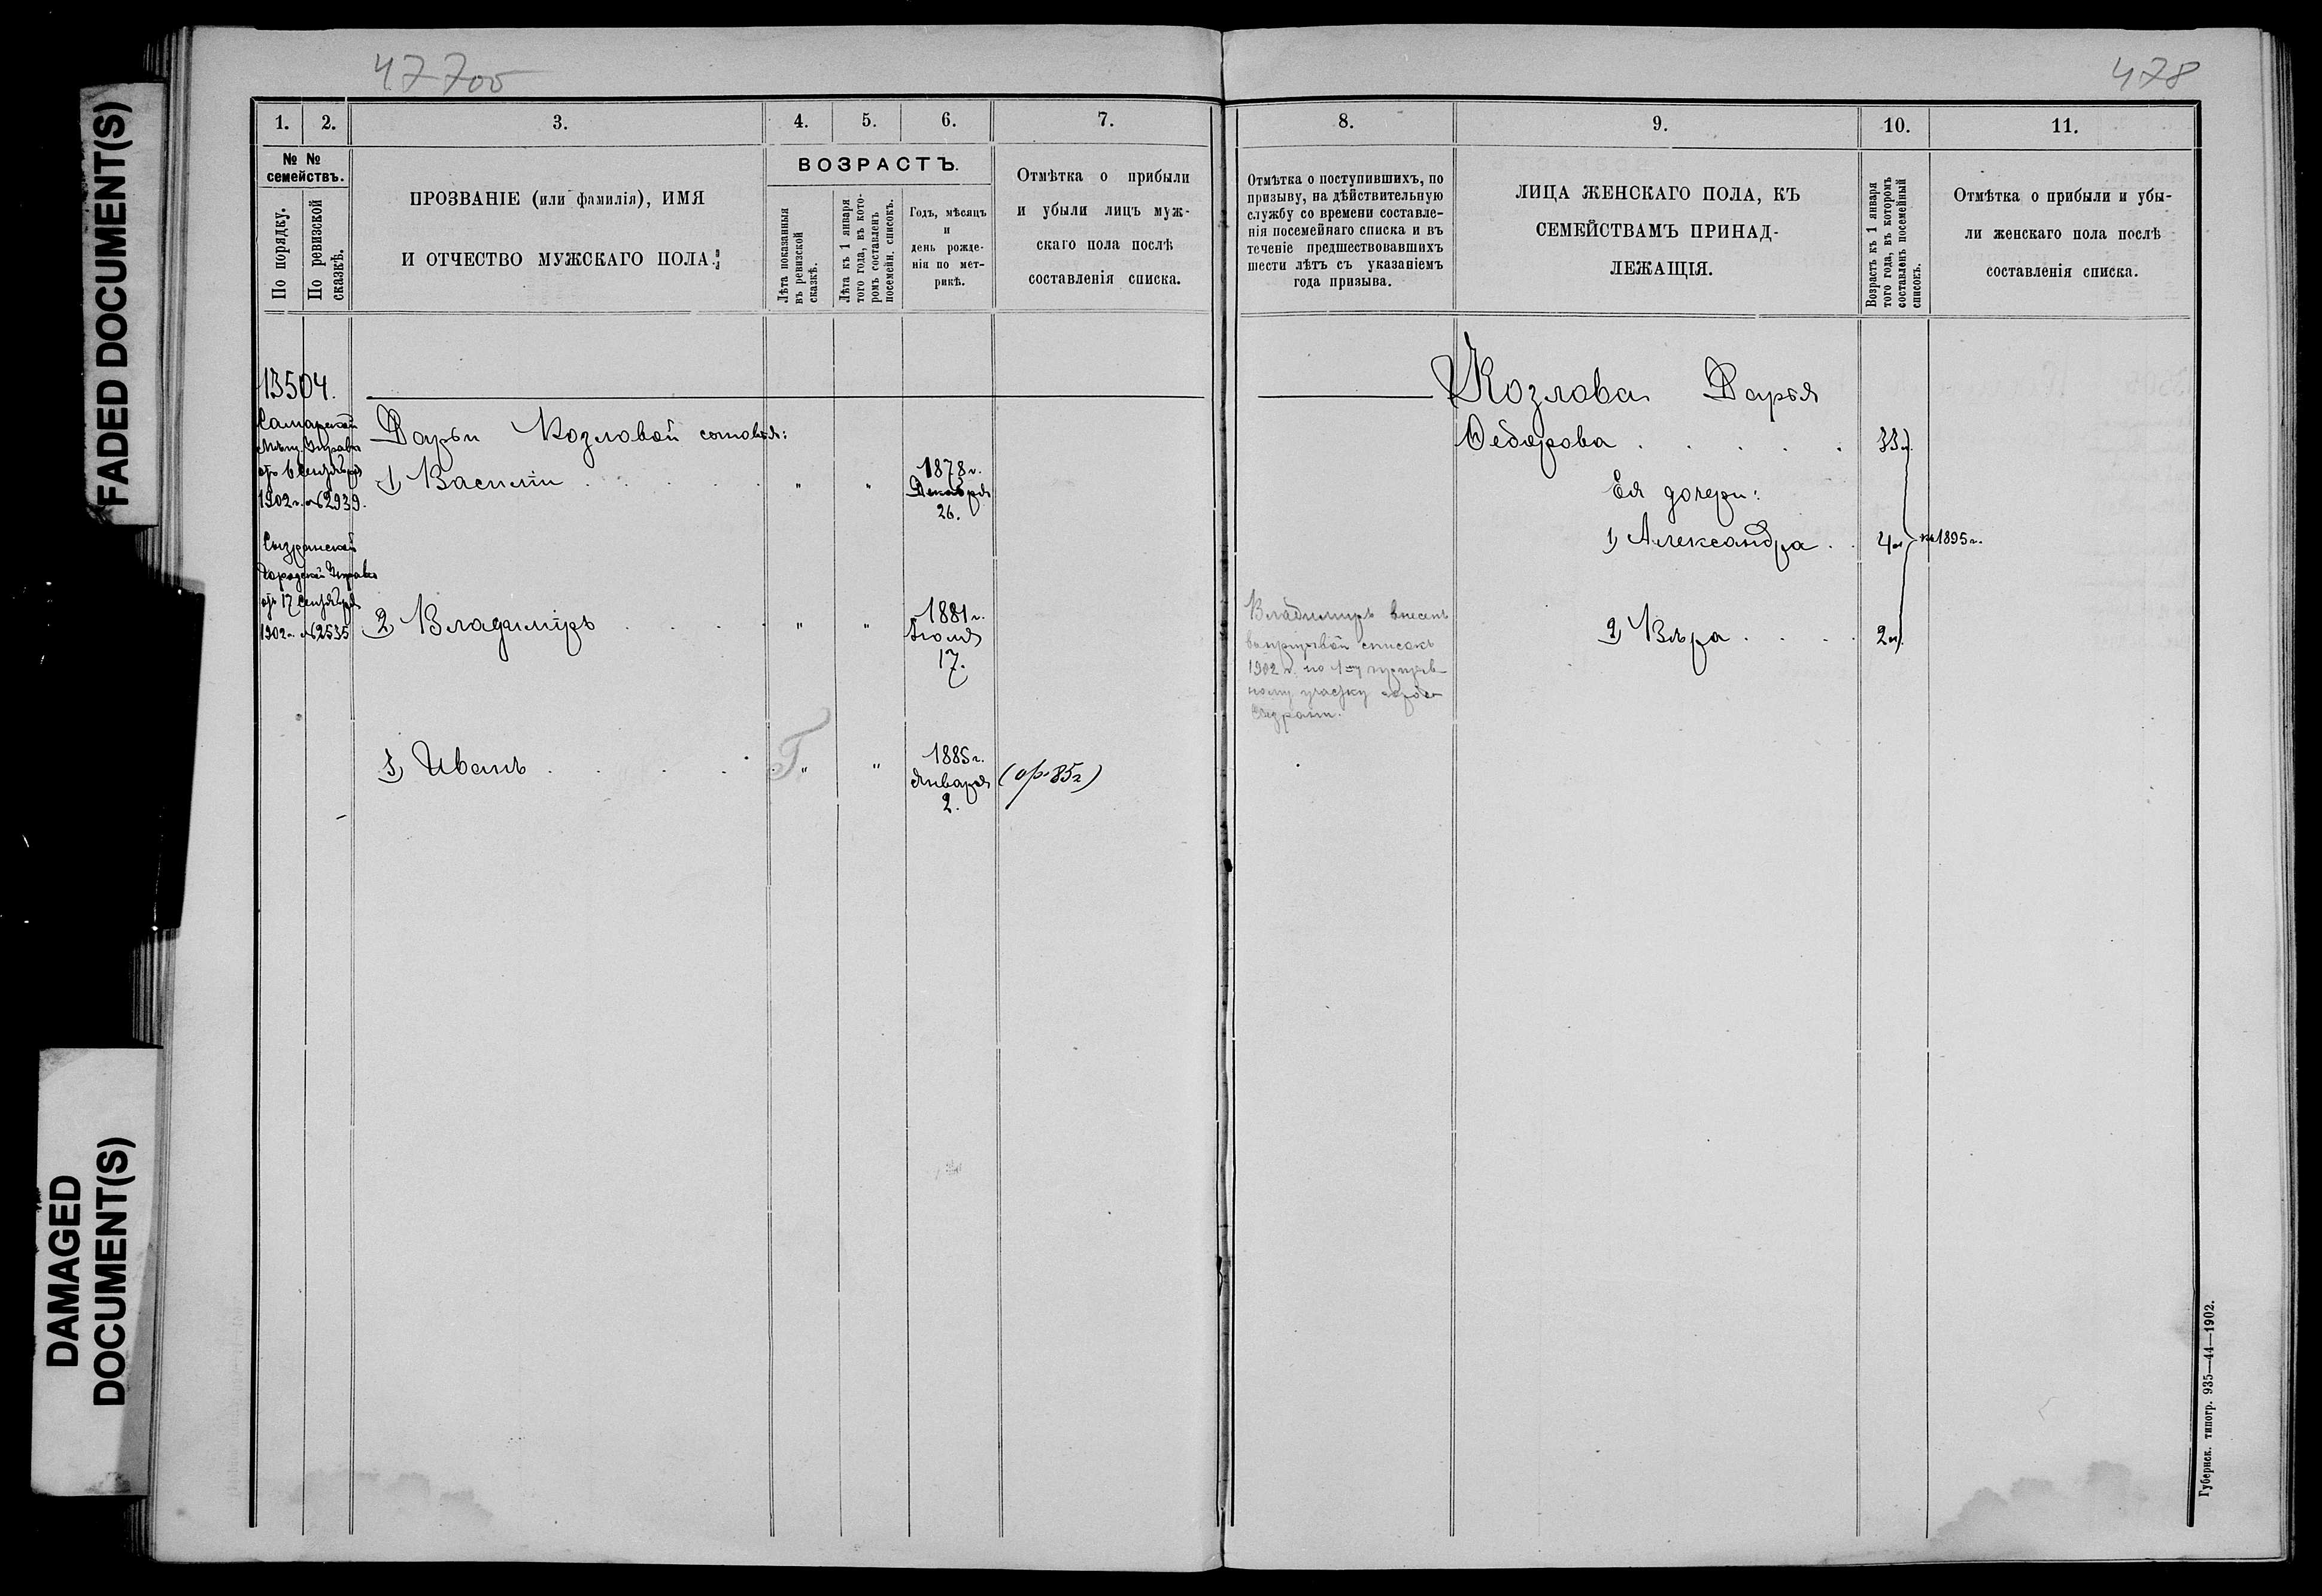 FADED DOCUMENT(S)
DAMAGED
DOCUMENT(S)
477об
478
1. 2. 3. 4. 5. 6. 7.
№ №
семействъ.
По порядку.
По ревизской
сказкѣ.
ПРОЗВАНІЕ (или фамилія), ИМЯ
И ОТЧЕСТВО МУЖСКАГО ПОЛА.
ВОЗРАСТЪ.
Лѣта показанныя
въ ревизской
сказкѣ.
Лѣта къ 1 января
того года, въ кото-
ромъ составленъ
посемейн. списокъ.
Годъ, мѣсяцъ
и
день рожде-
нія по мет-
рикѣ.
Отмѣтка о прибыли
и убыли лицъ муж-
скаго пола послѣ
составленія списка.
13504.
Самарской
Мѣщ. Управы
отъ 6 Сентября
1902 г. № 2939.
Сызранской
Городской Управы
отъ 17 Сентября
1902 г. № 2535
Дарьи Козловой сыновья:
1) Василій . . . . . „ „ 1878 г.
Декабря
26.
2) Владиміръ . . . . „ „ 1881 г.
Іюля
17.
3) Иванъ . . . . . „ „ 1885 г.
Января
2.
8. 9. 10. 11.
Отмѣтка о поступившихъ, по
призыву, на дѣйствительную
службу со времени составле-
нія посемейнаго списка и въ
теченіе предшествовавшихъ
шести лѣтъ съ указаніемъ
года призыва.
ЛИЦА ЖЕНСКАГО ПОЛА, КЪ
СЕМЕЙСТВАМЪ ПРИНАД-
ЛЕЖАЩІЯ.
Возрастъ къ 1 января
того года, въ которомъ
составленъ посемейный
списокъ.
Отмѣтка о прибыли и убы-
ли женскаго пола послѣ
составленія списка.
Козлова Дарья
Ѳедорова . . . . . 33
Ея дочери:
1) Александра . . 4 на 1895 г.
2) Вѣра . . . . 2
Владиміръ внесенъ
въ призывной списокъ
1902 г. по 1му призыв-
ному участку города
Сызрани.
Губернск. типогр. 935—44—1902.